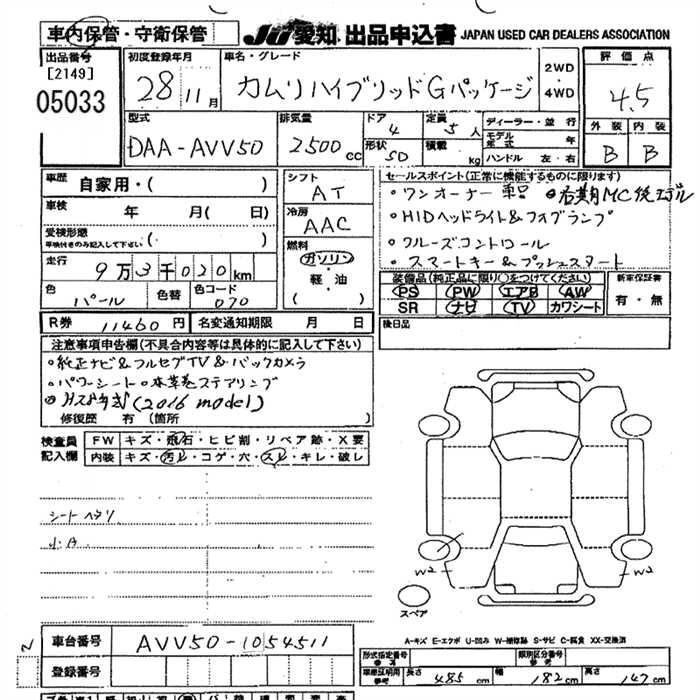 車内保管・守衛保管 JU愛知 出品申込書 JAPAN USED CAR DEALERS ASSOCIATION
出品番号 [2149] 05033
初度登録年月 28 11月
車名・グレード カムリハイブリッドGパッケージ
2WD・4WD
評価点 4.5
型式 DAA-AVV50
排気量 2500cc
ドア 4 形状 SD
定員 5人 積載 kg
ディーラー・並行
モデル年式 年
ハンドル 左・右
外装 B 内装 B
車歴 自家用・( )
シフト AT
車検 年 月( 日)
冷房 AAC
受検形態 車検付きのみ記入して下さい ( )
燃料 ガソリン・軽・油
走行 9万3千020km
色 パール 色替 色コード 070
R券 11460円 名変通知期限 月 日
セールスポイント(正常に機能するものに限ります)
・ワンオーナー車
MC後モデル
・HIDヘッドライト&フォグランプ
・クルーズコントロール
・スマートキー&プッシュスタート
装備品(純正品に限り○をつけてください)
PS PW エアB AW
SR ナビ TV カワシート
新車保証書 有・無
後日品
注意事項申告欄(不具合内容等は具体的に記入して下さい)
・純正ナビ&フルセグTV&バックカメラ
・パワーシート・本革巻ステアリング
H28年式(2016 model)
修復歴 有(箇所 )
検査員記入欄
FW キズ・飛石・ヒビ割・リペア跡・X要
内装 キズ・汚レ・コゲ・穴・スレ・キレ・破レ
シートヘタリ
W2 W2
スペア
A-キズ E-エクボ U-凹み W-補修跡 S-サビ C-腐食 XX-交換済
車台番号 AVV50-1054511
登録番号
形式指定番号 類別区分番号
車検証明用参考 長さ 485cm 幅 182cm 高さ 147cm